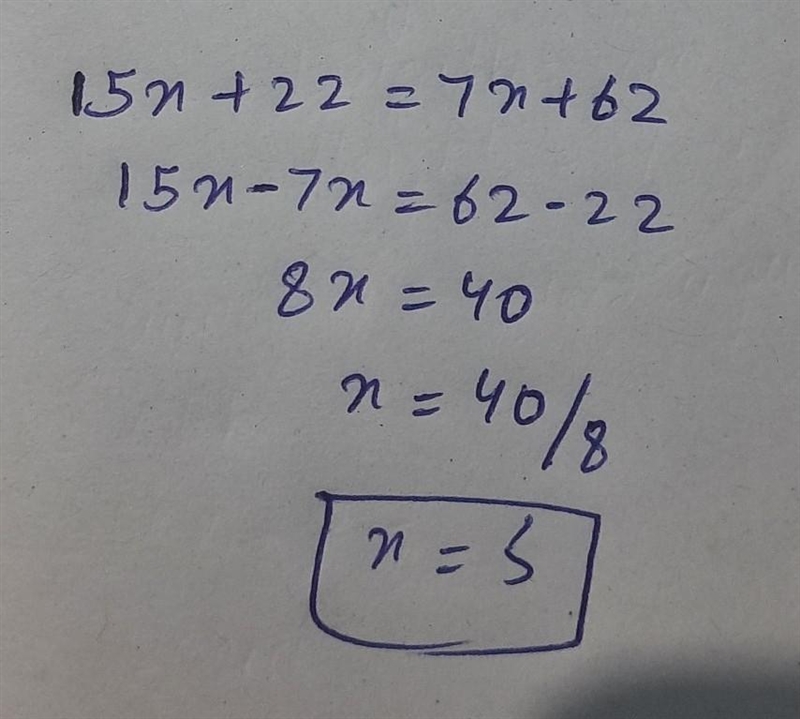 15x + 22 = 7x + 62
15x - 7x = 62 - 22
8x = 40
x = 40/8
x = 5